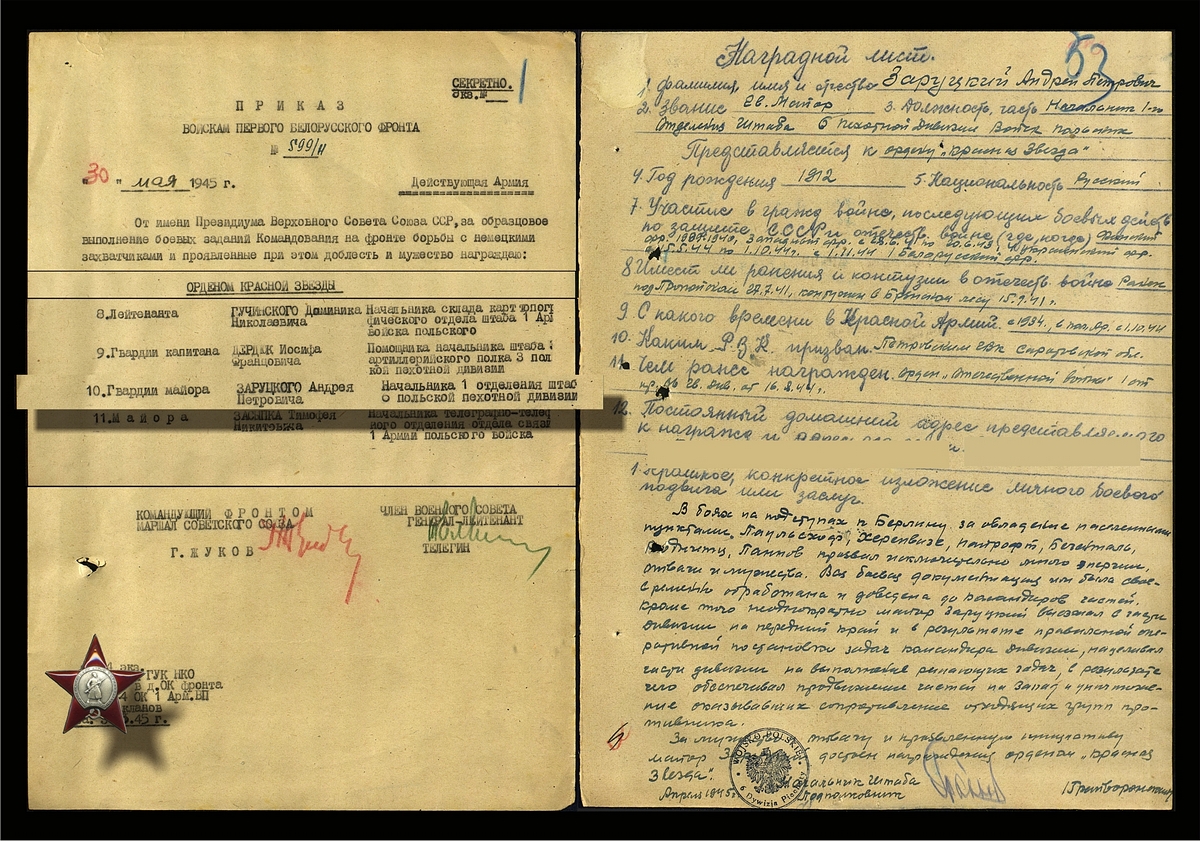 СЕКРЕТНО.
Экз.№
1
ПРИКАЗ
ВОЙСКАМ ПЕРВОГО БЕЛОРУССКОГО ФРОНТА
№ 599/н
"30" мая 1945 г.
Действующая Армия
От имени Президиума Верховного Совета Союза ССР, за образцовое
выполнение боевых заданий Командования на фронте борьбы с немецкими
захватчиками и проявленные при этом доблесть и мужество награждаю:
ОРДЕНОМ КРАСНОЙ ЗВЕЗДЫ
8.Лейтенанта ГУЧИНСКОГО Доминика Начальника склада карт топогр
Николаевича фического отдела штаба 1 Ар
Войска польского
9.Гвардии капитана Иосифа Помощника начальника штаба
Францовича артиллерийского полка 3 пол
кой пехотной дивизии
10.Гвардии майора ЗАРУЦКОГО Андрея Начальника 1 отделения штаб
Петровича 6 польской пехотной дивизии
11.Майора Тимофея Начальника телеграфно-телеф
Никитовича ного отделения отдела связи
1 Армии польского войска
КОМАНДУЮЩИЙ ФРОНТОМ
МАРШАЛ СОВЕТСКОГО СОЮЗА
Г.ЖУКОВ
ЧЛЕН ВОЕННОГО СОВЕТА
ГЕНЕРАЛ-ЛЕЙТЕНАНТ
ТЕЛЕГИН
экз.
ГУК НКО
в д.ОК фронта
ОК 1 Арм.ВП
45 г.
53
Наградной лист.
1. Фамилия, имя и отчество Заруцкий Андрей Петрович
2. Звание Гв. Майор 3. Должность, часть Начальник 1-го
Отделения Штаба 6 Пехотной Дивизии Войск польских
Представляется к ордену "Красная Звезда"
4. Год рождения 1912 5. Национальность Русский
7. Участие в гражд войне, последующих боевых действ
по защите СССР и отечеств. войне (где, когда) Финский
фр. 1939-1940, Западный фр. с
1.10.44г. с 1.11.44 1 Белорусский фр.
8 Имеет ли ранения и контузии в отечеств войне Ранен
под Пропойском 27.7.41, контужен в Брянском лесу 15.9.41г.
9. С какого времени в Красной Армии. с 1934. в пол. с 1.10.44
10. Каким Р.В.К. призван. Петровским РВК Саратовской обл.
11. Чем ранее награжден. орден "Отечественной войны" 1 ст
от 16.2.44г.
12. Постоянный домашний адрес представляемого
к награжд и адрес
1. Краткое, конкретное изложение личного боевого
подвига или заслуг.
В боях на подступах к Берлину за овладение населенными
пунктами, Паульсхоф,
проявил исключительно много энергии,
отваги и мужества. Вся боевая документация им была свое-
временно обработана и доведена до командиров частей.
Кроме того неоднократно майор Заруцкий выезжал в части
дивизии на передний край и в результате правильной опе-
ративной постановки задач командира дивизии,
части дивизии на выполнение решающих задач, в результате
чего обеспечивал продвижение частей на Запад и уничтоже-
ние оказывавших сопротивление отходящих групп про-
тивника.
За отвагу и проявленную инициативу
майор достоин награждения орденом "Красная
Звезда".
Начальник Штаба
Апрель 1945г. Подполковник
WOJSKO POLSKIE
6 Dywizja Piechoty